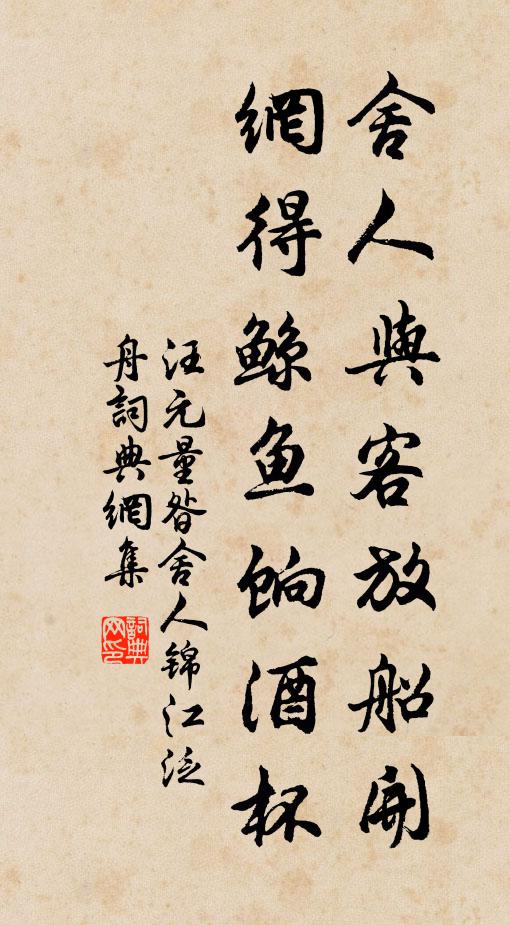 舍人與客放船開
網得鯨鱼餉酒杯
汪元量昝舍人錦江泛
舟詞典網集
詞典網印